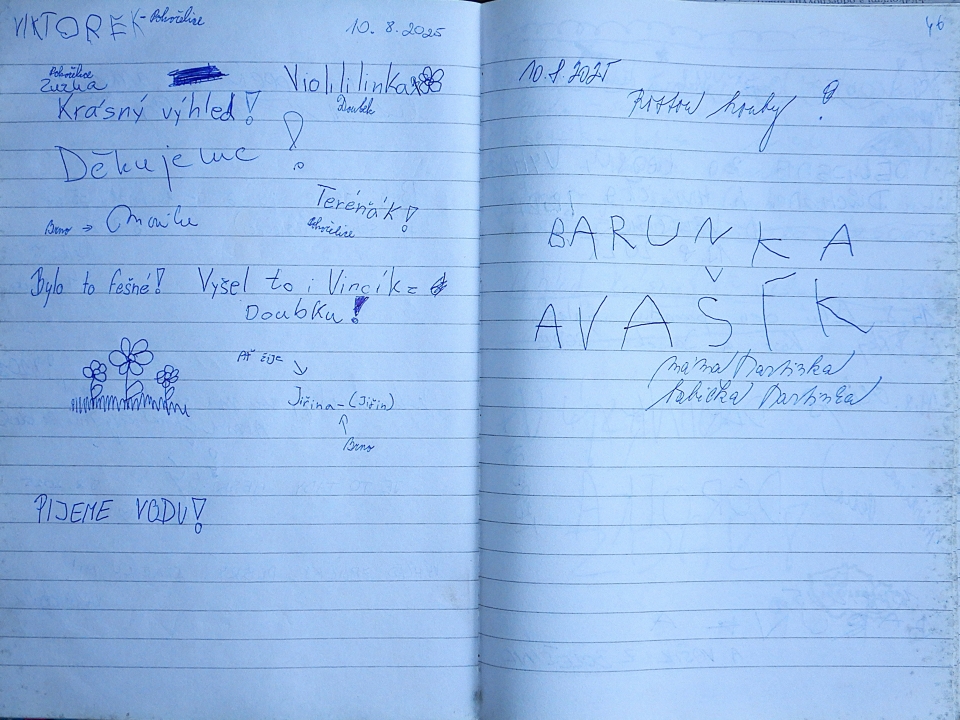 VIKTOREK - Pohořelice
10. 8. 2025
Pohořelice
Zuzka
Violililinka
Doubek
Krásný výhled!
Děkujeme!
Terénňák!
Pohořelice
Brno →
Bylo to fešné! Vyšel to i Vincík =
Doubku!
Jiřina - (Jiřín)
Brno
PIJEME VODU!
46
10.8.2025
Rostou houby?
BARUNKA
A VAŠÍK
máma Martinka
babička Martinka